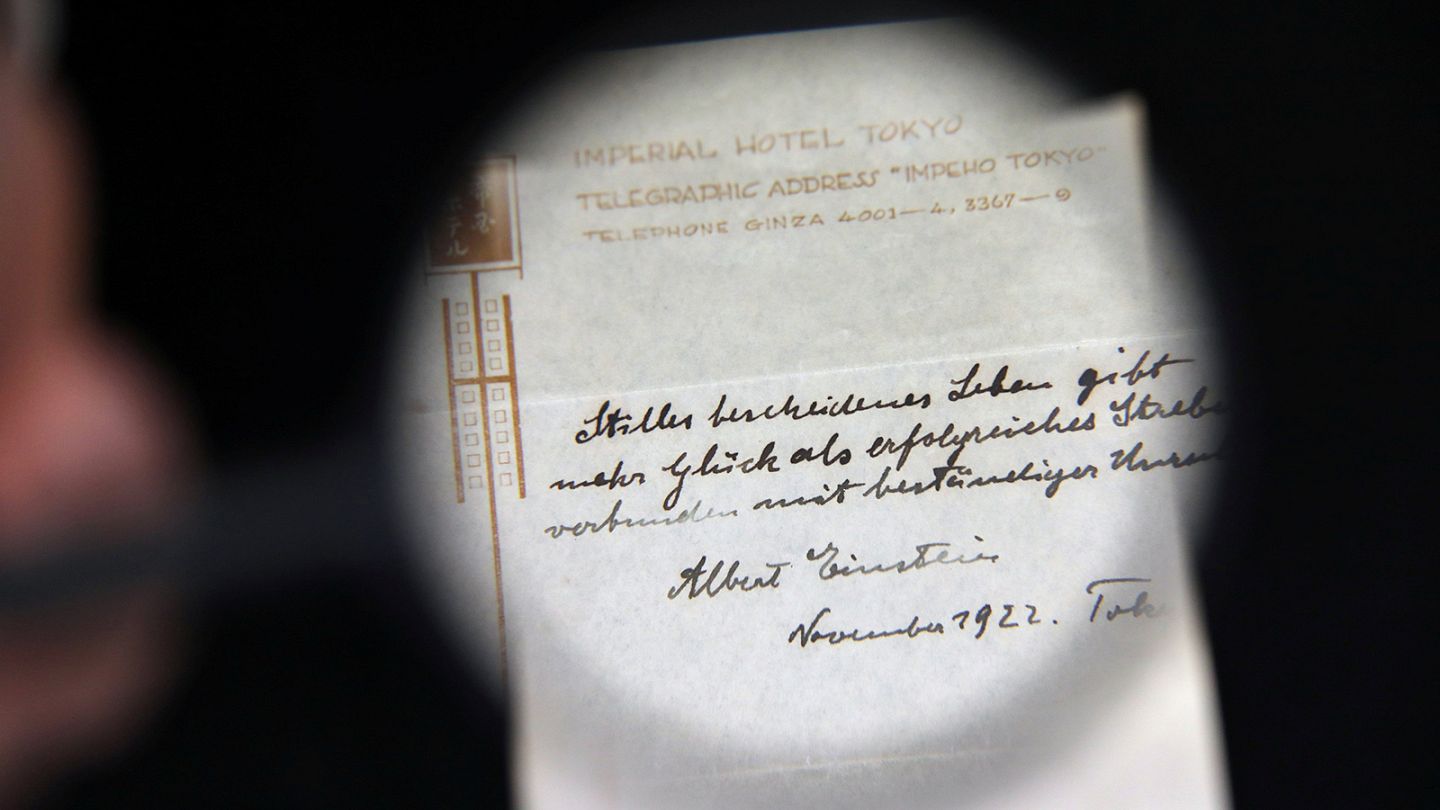 IMPERIAL HOTEL TOKYO
TELEGRAPHIC ADDRESS "IMPEHO TOKYO"
TELEPHONE GINZA 4001—4, 3367—9
Stilles bescheidenes Leben gibt
mehr Glück als erfolgreiches Strebe
verbunden mit beständiger Unru
Albert Einstein
November 1922. Tok